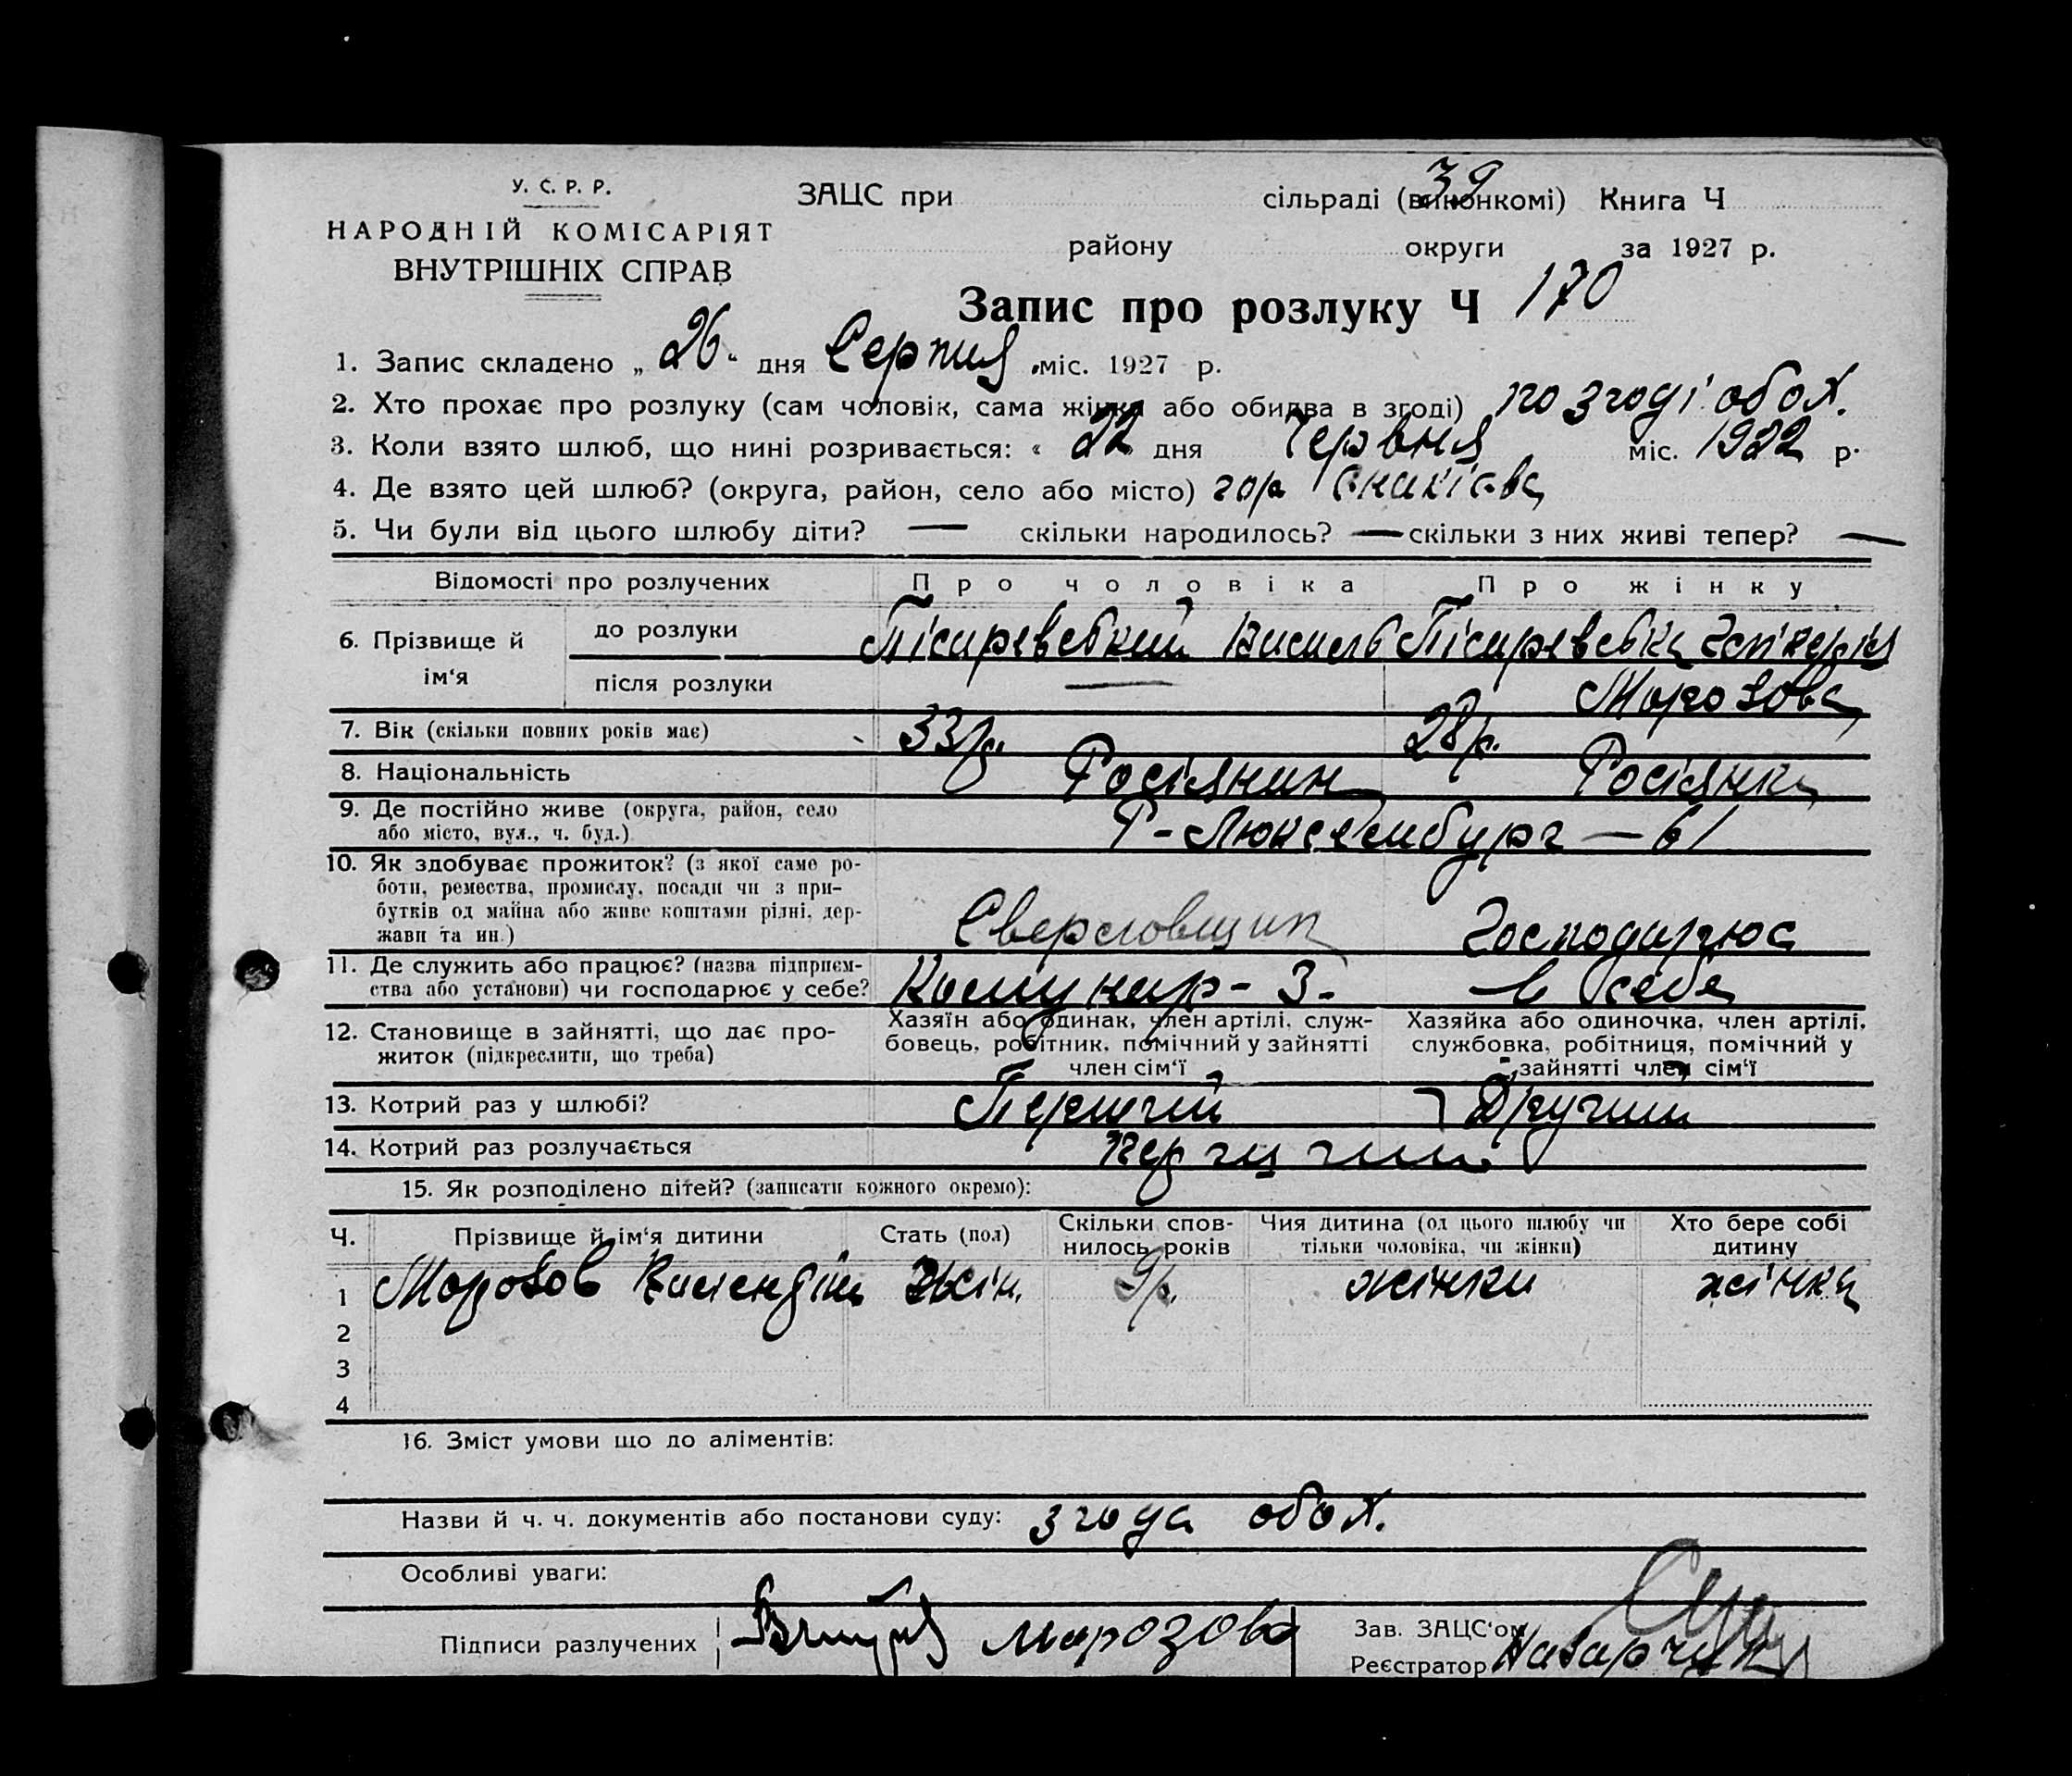 У. С. Р. Р.
НАРОДНІЙ КОМІСАРІЯТ
ВНУТРІШНІХ СПРАВ
ЗАЦС при сільраді (виконкомі) Книга Ч
39
району округи за 1927 р.
Запис про розлуку Ч 170
1. Запис складено „ 26 “ дня Серпня міс. 1927 р.
2. Хто прохає про розлуку (сам чоловік, сама жінка або обидва в згоді) по згоді обох.
3. Коли взято шлюб, що нині розривається: « 22 дня Червня міс. 1922 р.
4. Де взято цей шлюб? (округа, район, село або місто) гор
5. Чи були від цього шлюбу діти? — скільки народилось? — скільки з них живі тепер? —
Відомості про розлучених Про чоловіка Про жінку
6. Прізвище й ім‘я до розлуки Пісаревський Василь Пісаревська
після розлуки — Морозова
7. Вік (скільки повних років має) 33 р. 28 р.
8. Національність Росіянин Росіянка
9. Де постійно живе (округа, район, село
або місто, вул., ч. буд.) Р-Люксембург — 61
10. Як здобуває прожиток? (з якої саме ро-
боти, ремества, промислу, посади чи з при-
бутків од майна або живе коштами рідні, дер-
жави та ин.) Сверловщик Господарює
11. Де служить або працює? (назва підприєм-
ства або установи) чи господарює у себе? Комунар - З. в себе
12. Становище в зайнятті, що дає про-
житок (підкреслити, що треба)
Хазяїн або одинак, член артілі, служ-
бовець, робітник, помічний у зайнятті
член сім‘ї
Хазяйка або одиночка, член артілі,
службовка, робітниця, помічний у
зайнятті член сім‘ї
13. Котрий раз у шлюбі? Перший Другий
14. Котрий раз розлучається
15. Як розподілено дітей? (записати кожного окремо):
Ч. Прізвище й ім‘я дитини Стать (пол) Скільки спов-
нилось років Чия дитина (од цього шлюбу чи
тільки чоловіка, чи жінки) Хто бере собі
дитину
1 Морозов жін. 9 р. жінки жінка
2
3
4
16. Зміст умови що до аліментів:
Назви й ч. ч. документів або постанови суду: згода обох.
Особливі уваги:
Підписи разлучених Морозова
Зав. ЗАЦС‘ом
Реєстратор Назарчук